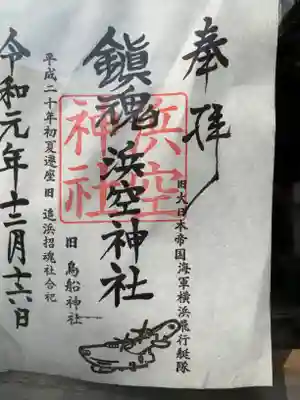 奉拝
旧大日本帝国海軍横浜飛行艇隊
鎮魂 浜空神社
浜空
神社
旧 鳥船神社
平成二十年初夏遷座 旧 追浜招魂社合祀
令和元年十二月十六日